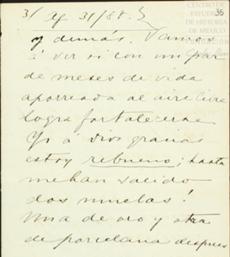 36
3/
31/88.
y demás. Vamos
á ver si con un par
de meses de vida
aporreada al aire libre
logra fortalecerse
Yo á Dios gracias
estoy rebueno; hasta
me han salido
dos muelas!
Una de oro y otra
de porcelana despues